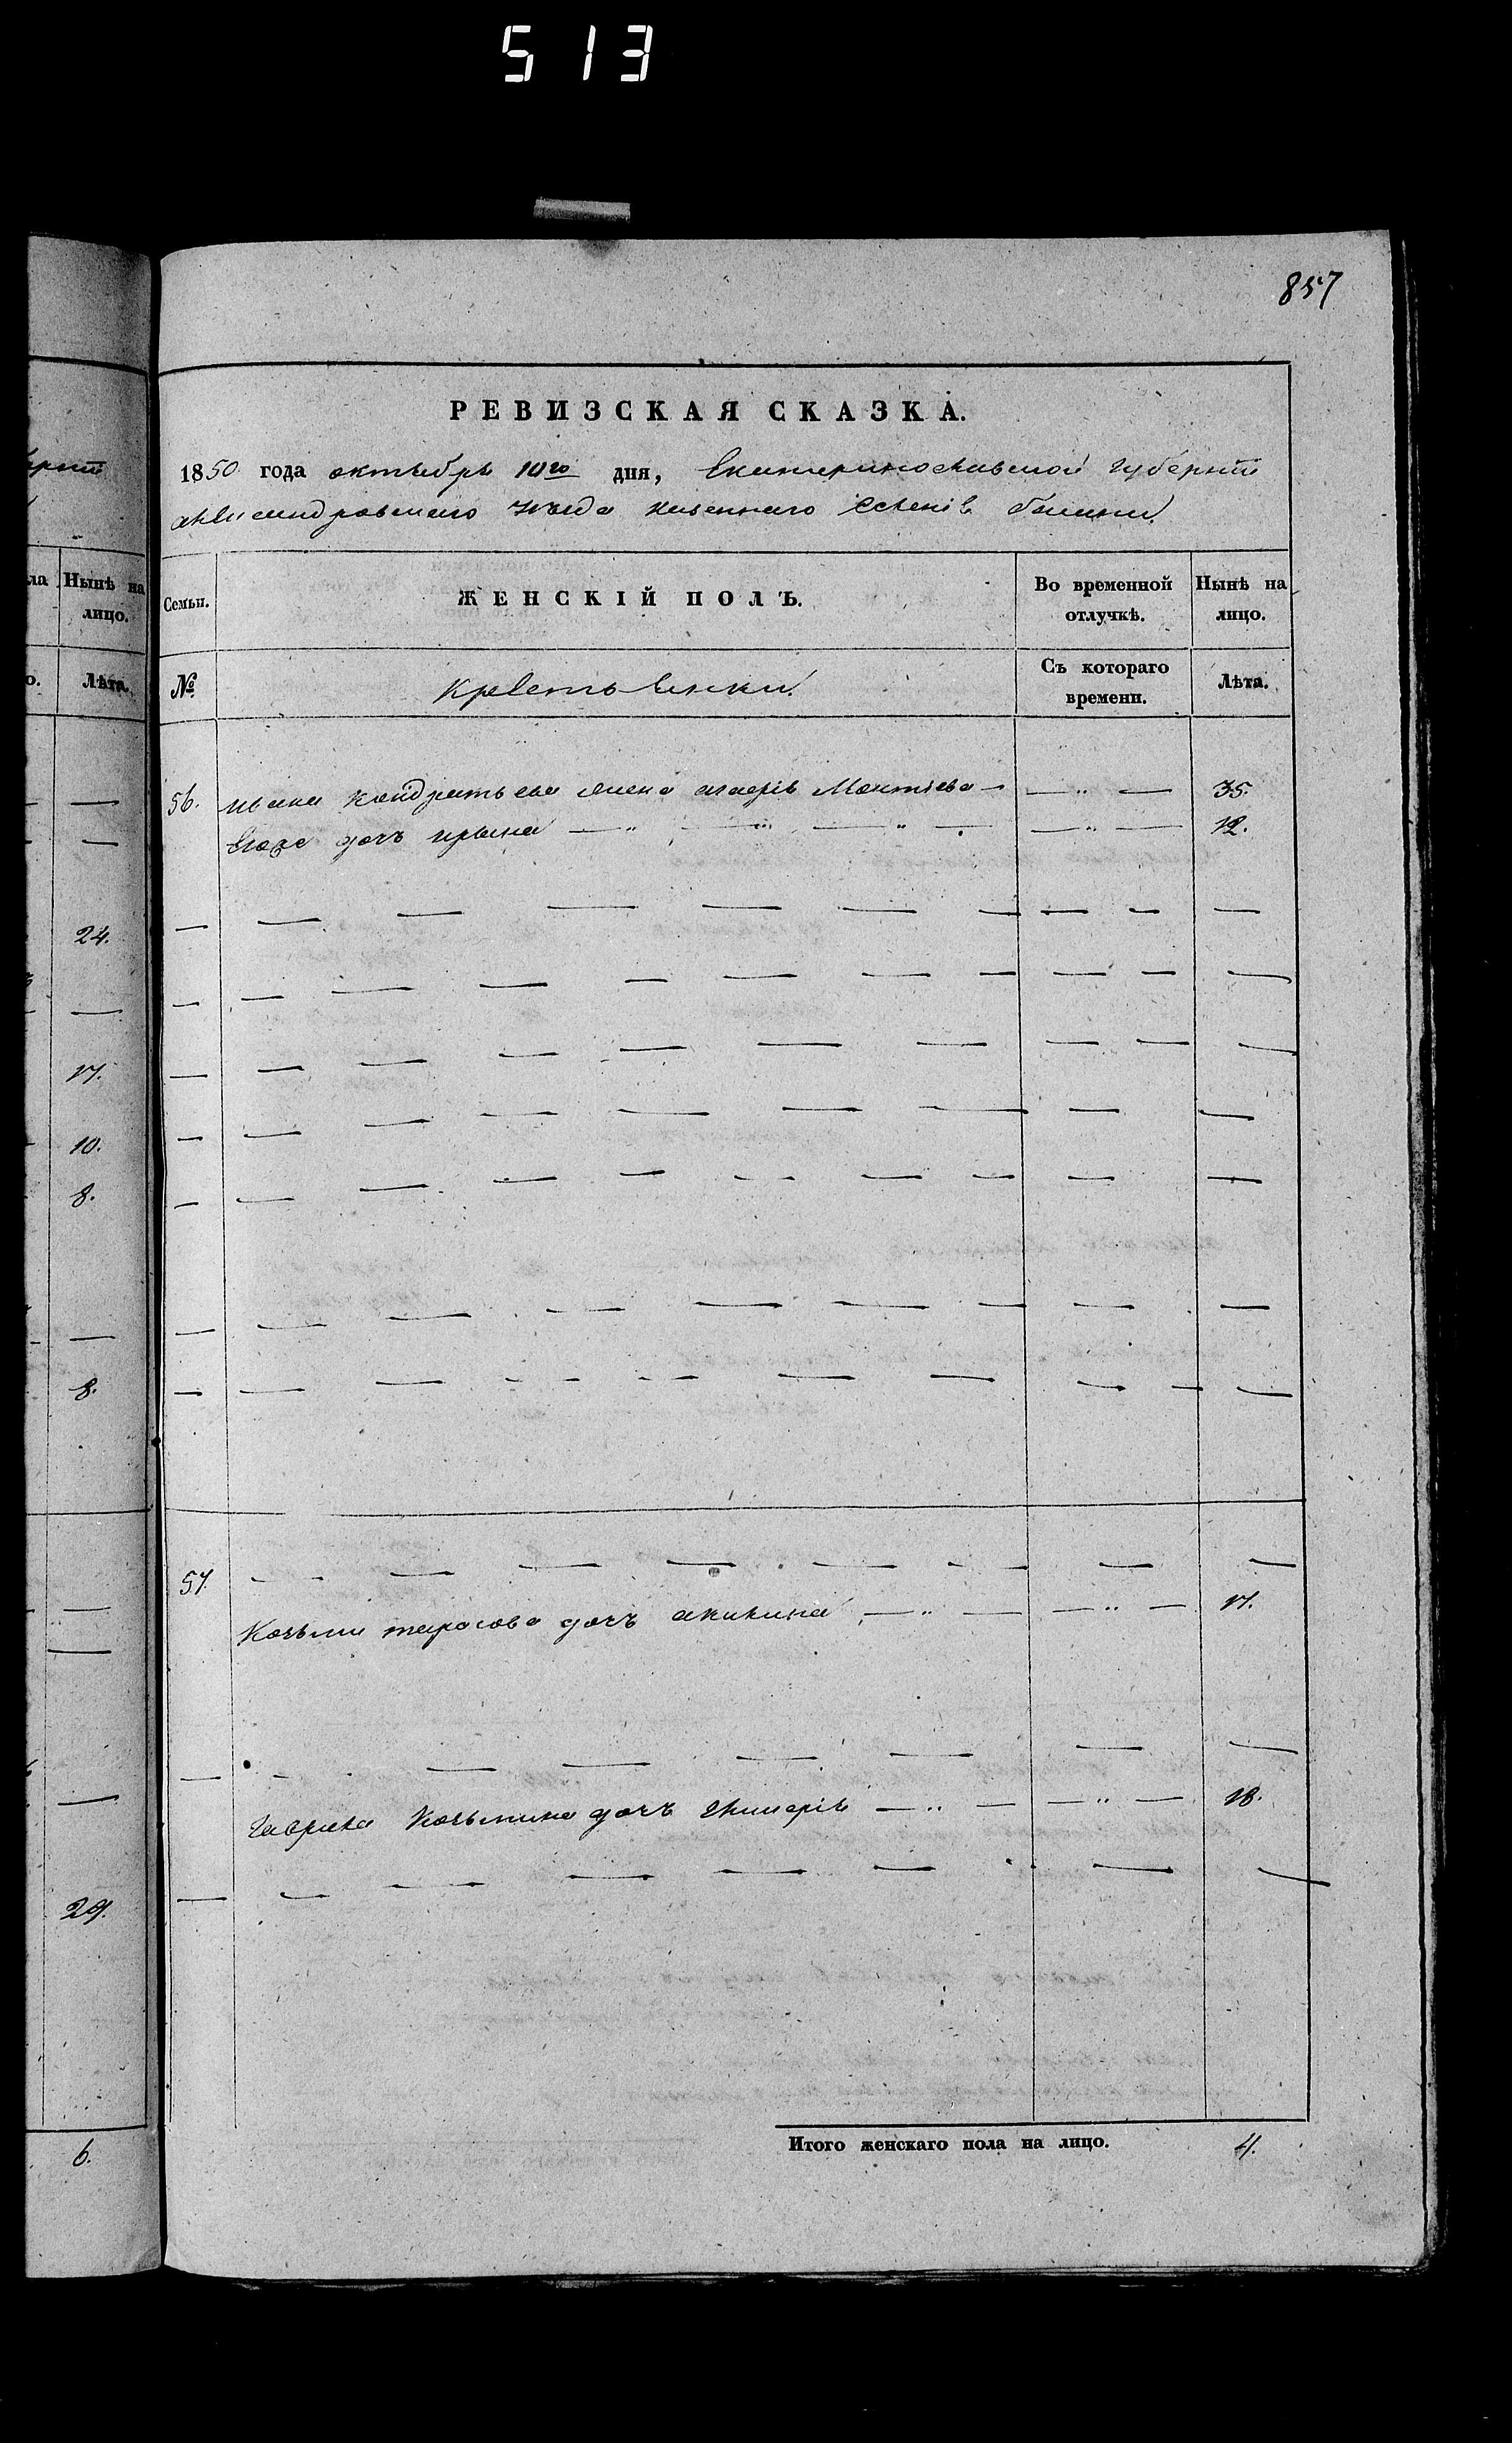 513
857
РЕВИЗСКАЯ СКАЗКА.
1850 года октебря 10го дня, Екатеринославской губернии
александровскаго уезда казеннаго селения
Семьи. ЖЕНСКІЙ ПОЛЪ. Во временной отлучкѣ. Нынѣ на лицо.
№ Крестьянки. Съ котораго времени. Лѣта.
56. Кондратьева жена — " — 35.
Его дочь ирина — " — " — " — — " — 12.
57.
Козьмы тарасова дочь акилина — " — — " — 17.
Гаврила Козьмина дочь — " — — " — 18.
Итого женскаго пола на лицо. 4.
Нынѣ на лицо.
Лѣта.
24.
17.
10.
8.
8.
29.
6.